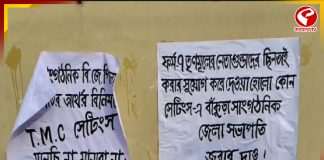 গঠনিক বি.জে.পি
অর্থের বিনিময়ে
T.M.C সেটিংস
মানছি না মানবো না
ফর্ম-৭ তৃণমূলের নেতাগুন্ডাদের ছিনতাই
করার সুযোগ করে দেওয়া হোলো কোন
সেটিংস-এ বাঁকুড়া সাংগঠনিক
জেলা সভাপতি
জবাব দাও।